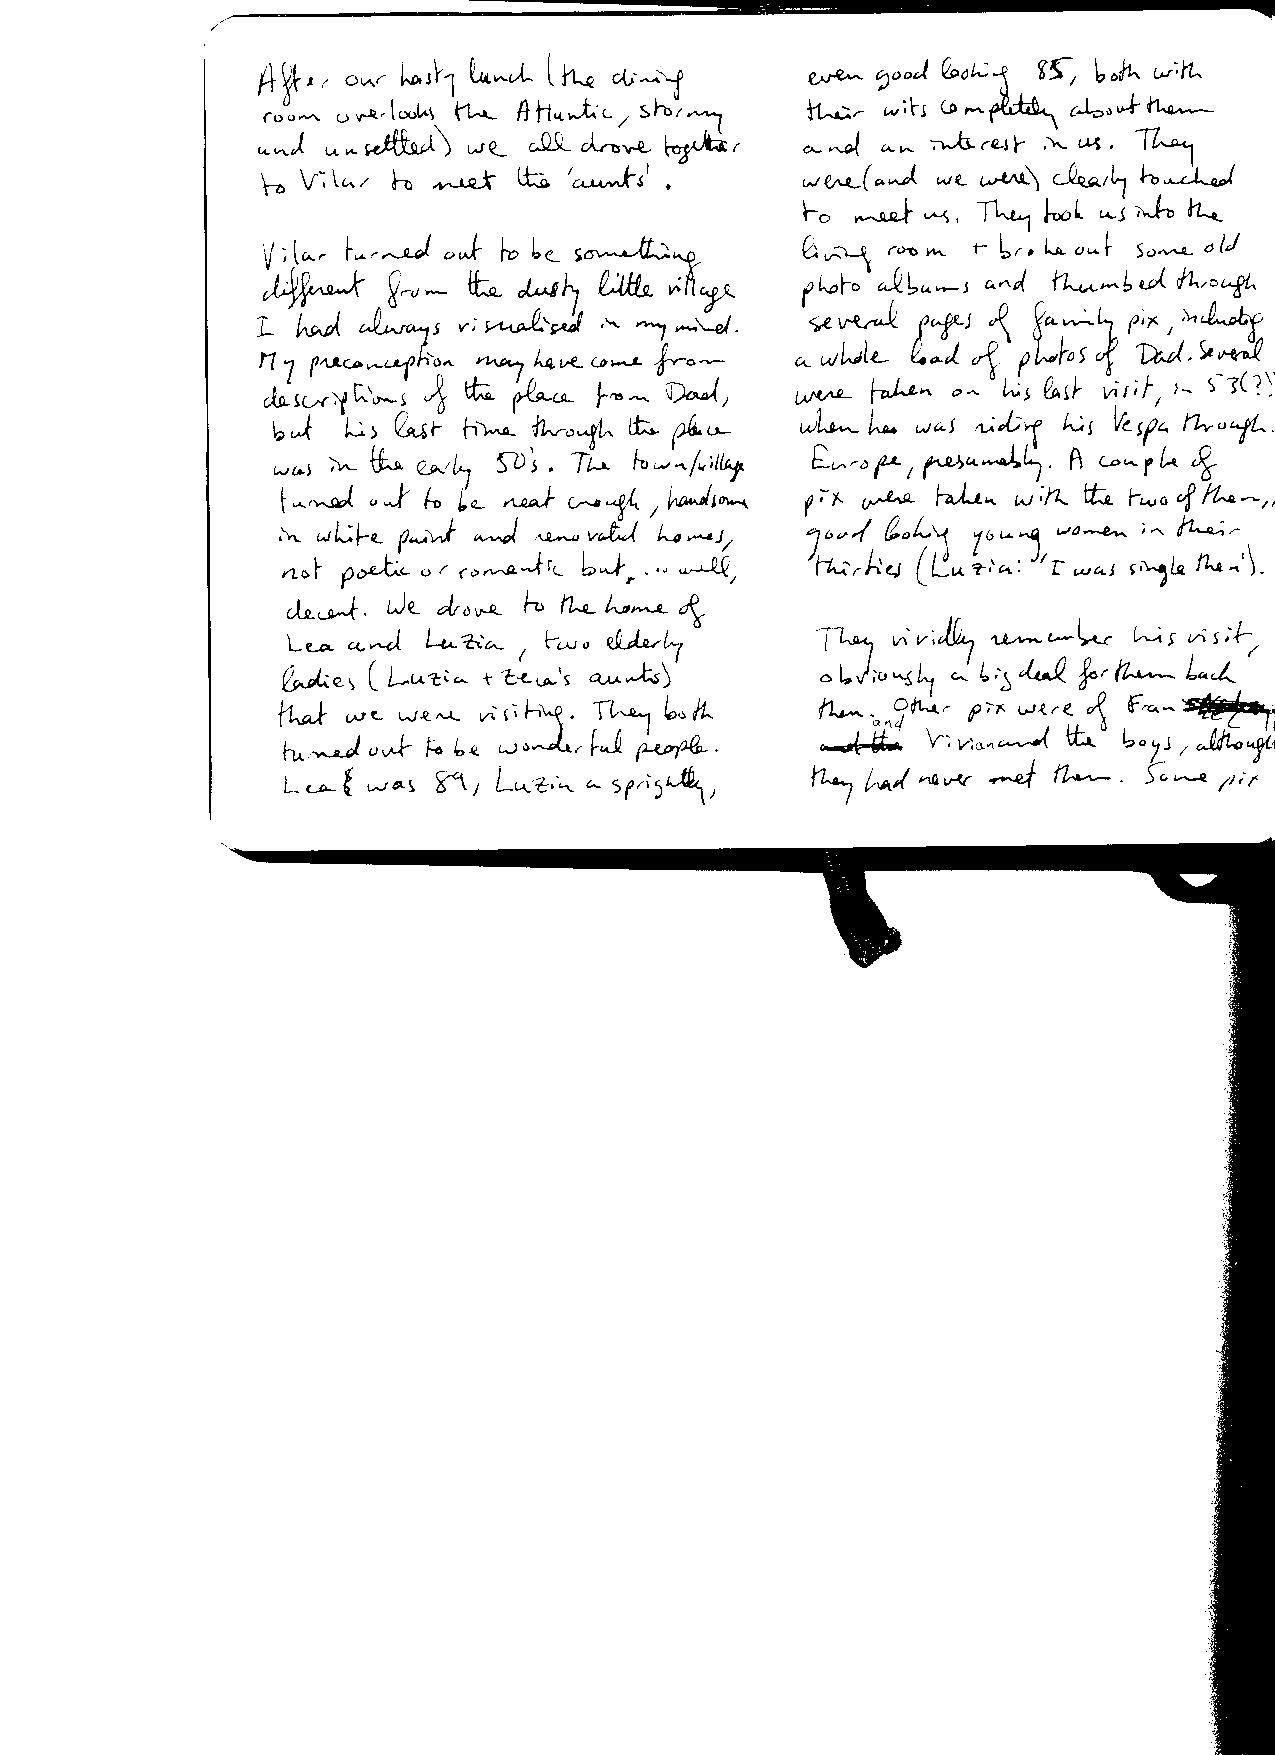 After our hasty lunch (the dining
room overlooks the Atlantic, stormy
and unsettled) we all drove together
to Vilar to meet the 'aunts'.
Vilar turned out to be something
different from the dusty little village
I had always visualised in my mind.
My preconception may have come from
descriptions of the place from Dad,
but his last time through the place
was in the early 50's. The town/village
turned out to be neat enough, handsome
in white paint and renovated homes,
not poetic or romantic but, ... well,
decent. We drove to the home of
Lea and Luzia, two elderly
ladies (Luzia + Zeca's aunts)
that we were visiting. They both
turned out to be wonderful people.
Lea was 89, Luzia a sprightly,
even good looking 85, both with
their wits completely about them
and an interest in us. They
were (and we were) clearly touched
to meet us. They took us into the
living room + broke out some old
photo albums and thumbed through
several pages of family pix, including
a whole load of photos of Dad. Several
were taken on his last visit, in 53(?)
when he was riding his Vespa through
Europe, presumably. A couple of
pix were taken with the two of them,
good looking young women in their
thirties (Luzia: "I was single then").
They vividly remember his visit,
obviously a big deal for them back
then. Other pix were of Fran
and Vivian and the boys, although
they had never met them. Some pix